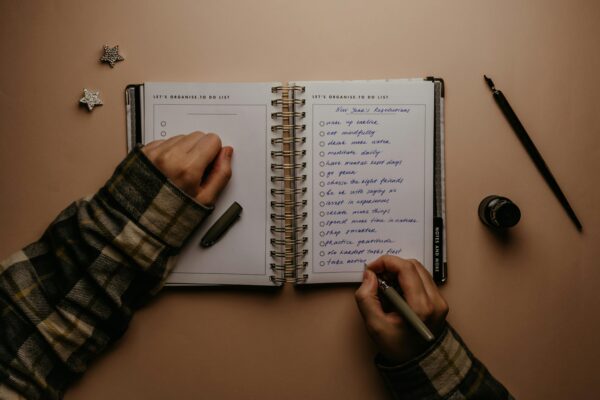 LET'S ORGANISE.TO DO LIST
LET'S ORGANISE.TO DO LIST
New Year's Resolutions
wake up earlier
eat mindfully
drink more water
meditate daily
have mental reset days
go green
choose the right friends
be ok with saying no
invest in experiences
create more things
spend more time in nature
shop smarter
practice gratitude
do hardest tasks first
take action
NOTES AND MORE